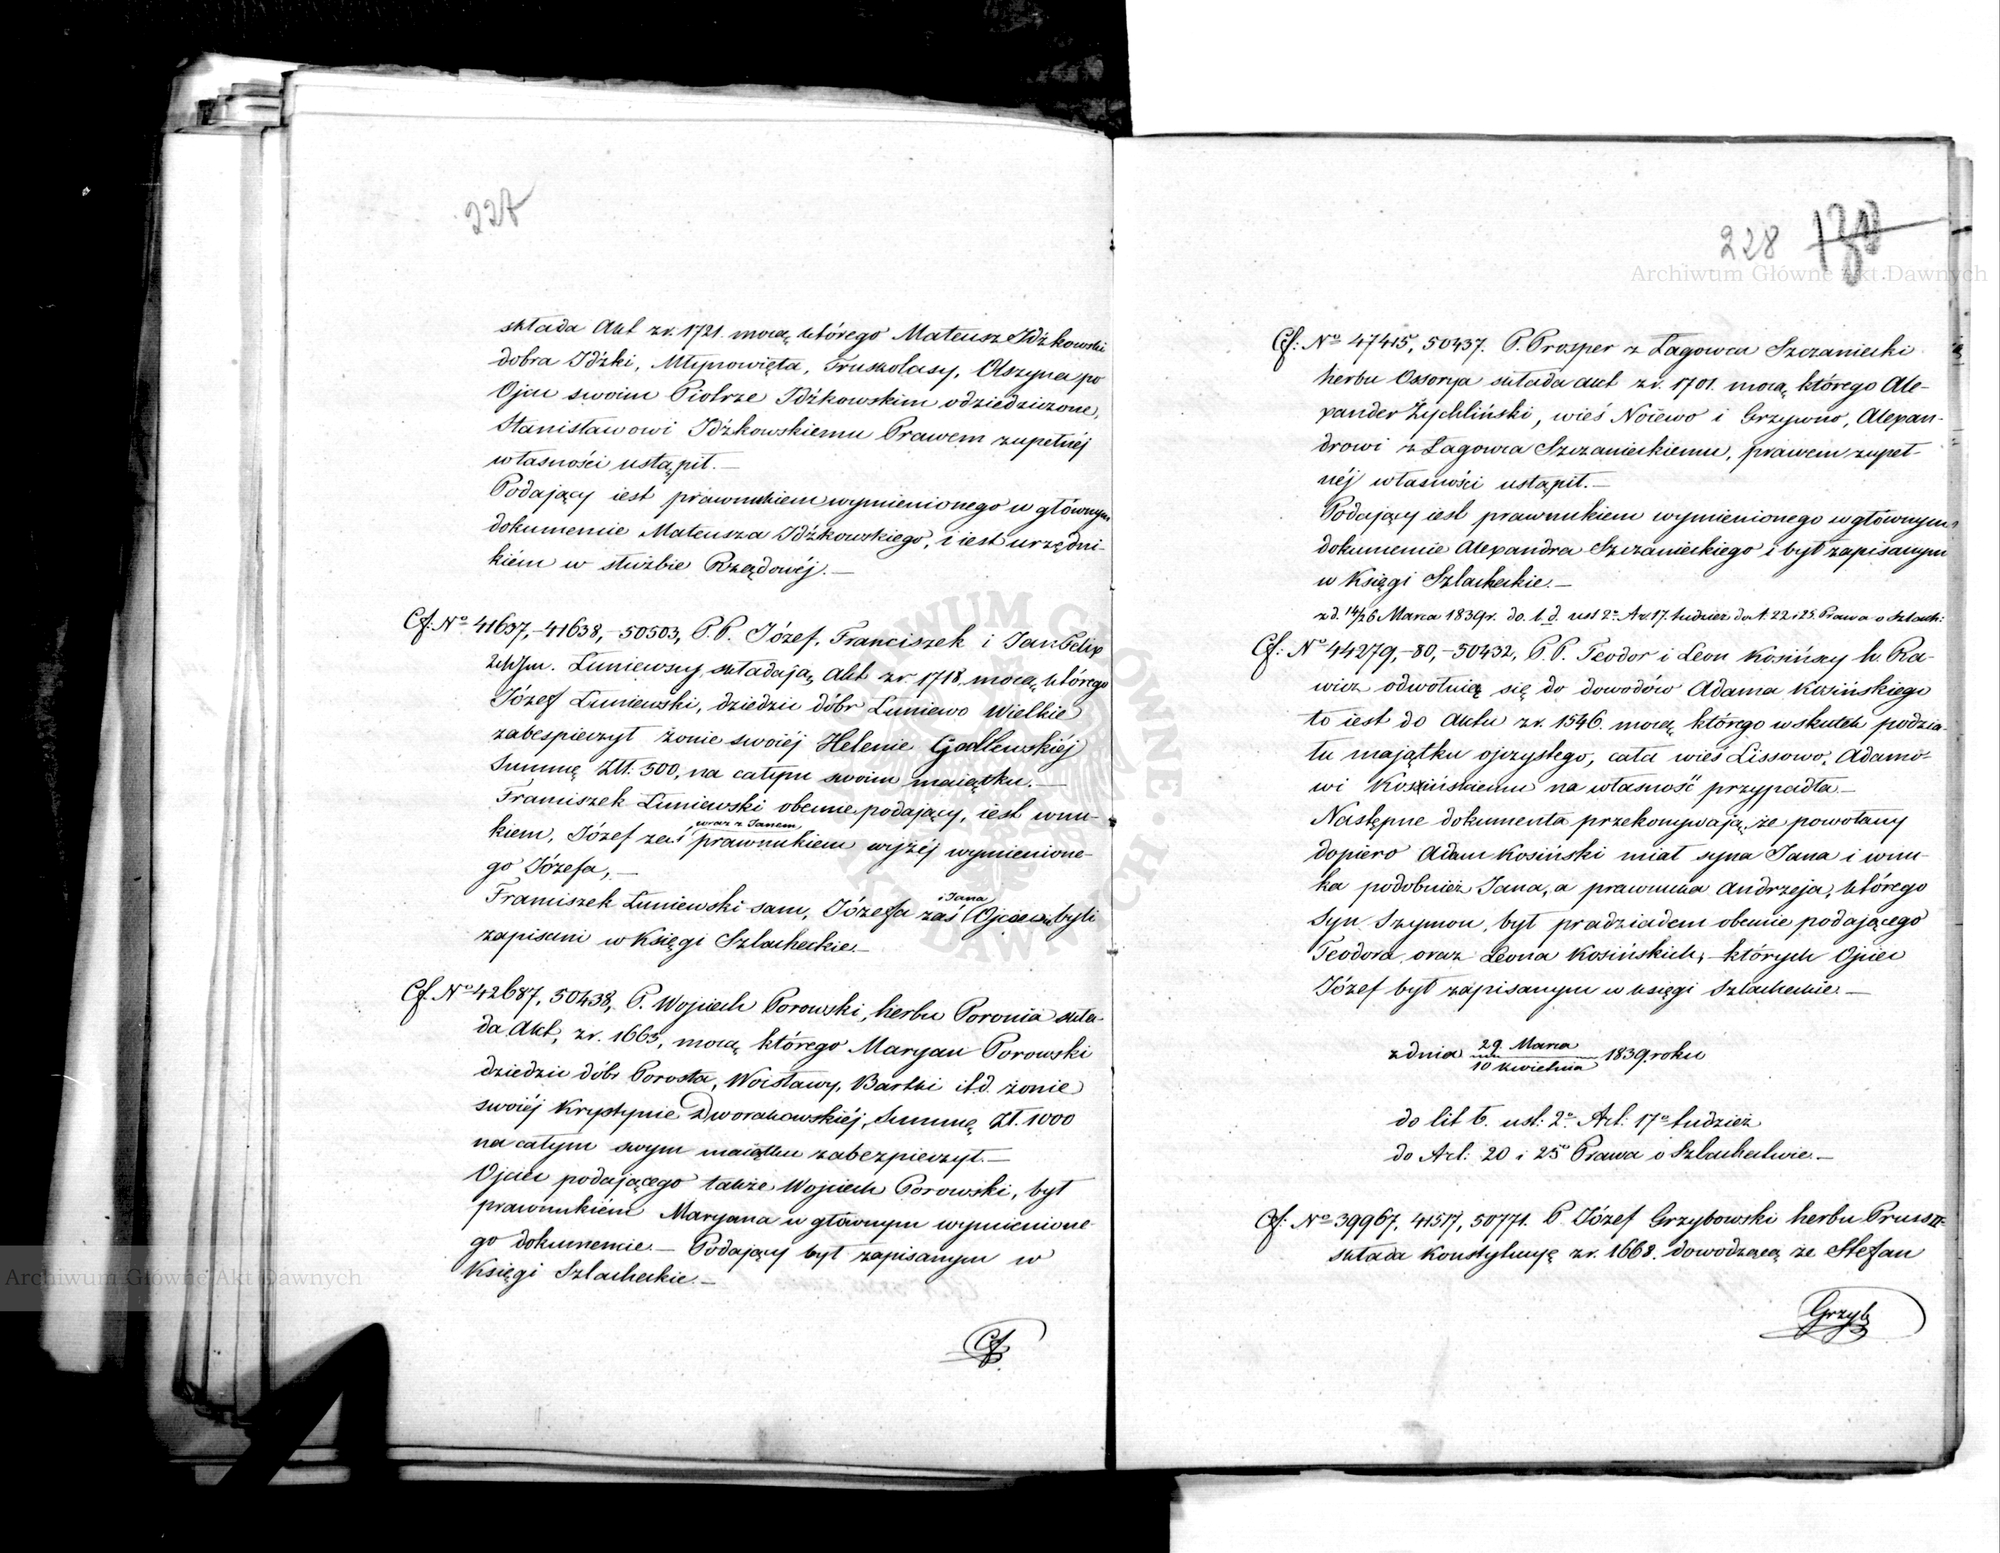 227
składa Akt zr. 1721. mocą którego Mateusz Idźkowski
dobra Idźki, Młynowięta, Truskolasy, Olszyna po
Ojcu swoim Piotrze Idźkowskim odziedziczone,
Stanisławowi Idźkowskiemu Prawem zupełnéj
własności ustąpił.—
Podający iest prawnukiem wymienionego w głównym
dokumencie Mateusza Idźkowskiego, i iest urzędni-
kiem w służbie Rządowéj.—
Cf. No 41637,-41638,-50503, P.P. Józef, Franciszek i Jan Felix
Łuniewscy, składają Akt zr. 1718. mocą którego
Józef Łuniewski, dziedzic dóbr Łuniewo Wielkie
zabespieczył żonie swoiéj Helenie Godlewskiéj
Summę Złt: 500, na całym swoim maiątku.—
Franciszek Łuniewski obecnie podający, iest wnu-
wraz z Janem
kiem, Józef zaś prawnukiem wyżéj wymienione-
go Józefa,—
i Jana
Franciszek Łuniewski sam, Józefa zaś Ojciec byli
zapisani w Księgi Szlacheckie.—
Cf. No 42687, 50438, P. Wojciech Porowski, herbu Poronia skła-
da Akt, zr. 1663, mocą którego Maryan Porowski
dziedzic dóbr Porosła, Woisławy, Bartki itd. żonie
swoiéj Krystynie Dworakowskiéj, Summę Zł. 1000
na całym swym maiątku zabezpieczył.—
Ojciec podającego także Wojciech Porowski, był
prawnukiem Maryana w głównym wymienione-
go dokumencie.— Podający był zapisanym w
Księgi Szlacheckie.—
Cf.
228
Cf: No 47415, 50437. P. Prosper z Łagowca Szczaniecki
herbu Ossorya składa akt zr. 1701. mocą którego Ale-
xander Żychliński, wieś Nociewo i Grzywno, Alexan-
drowi z Łagowca Szczanieckiemu, prawem zupeł-
néj własności ustąpił.—
Podający iest prawnukiem wymienionego w głównym
dokumencie Alexandra Szczanieckiego i był zapisanym
w Księgi Szlacheckie.—
zd. 14/26 Marca 1839r. do l. d. ust 2o Ar. 17. tudzież do A. 22 i 25. Prawa o Szlach:
Cf: No 44279,-80,-50432, P.P. Teodor i Leon Kosińscy h. Ra-
wicz odwołuią się do dowodów Adama Kosińskiego
to iest do Aktu zr. 1546. mocą którego w skutek podzia-
łu majątku ojczystego, cała wieś Lissowo, Adamo-
wi Kosińskiemu na własność przypadła.—
Następne dokumenta przekonywają, że powołany
dopiero Adam Kosiński miał syna Jana i wnu-
ka podobnież Jana, a prawnuka Andrzeja, którego
syn Szymon, był pradziadem obecnie podającego
Teodora oraz Leona Kosińskich, których Ojciec
Józef był zapisanym w księgi Szlacheckie.—
z dnia 29. Marca / 10 kwietnia 1839. roku
do lit b. ust: 2o Art: 17o tudzież
do Art: 20 i 25o Prawa o Szlachectwie.—
Cf: No 39967, 41517, 50771. P. Józef Grzybowski herbu Prus II
składa Konstytucyę zr. 1668. dowodzącą że Stefan
Grzyb
Archiwum Główne Akt Dawnych
Archiwum Główne Akt Dawnych
ARCHIWUM GŁÓWNE AKT DAWNYCH